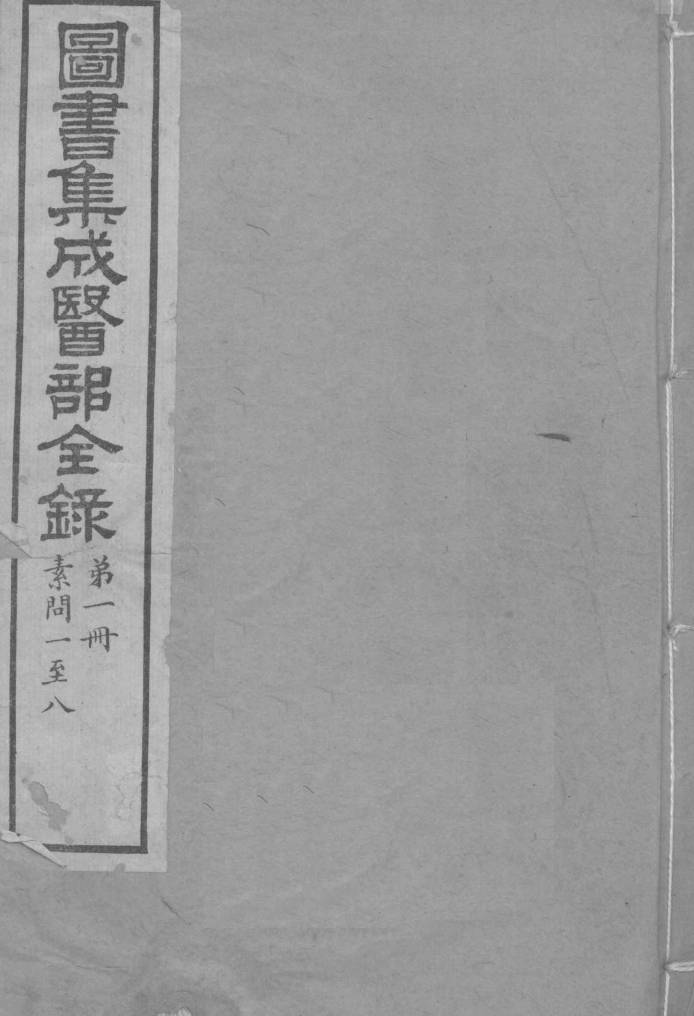 圖書集成醫部全錄
弟一冊
素問一至八